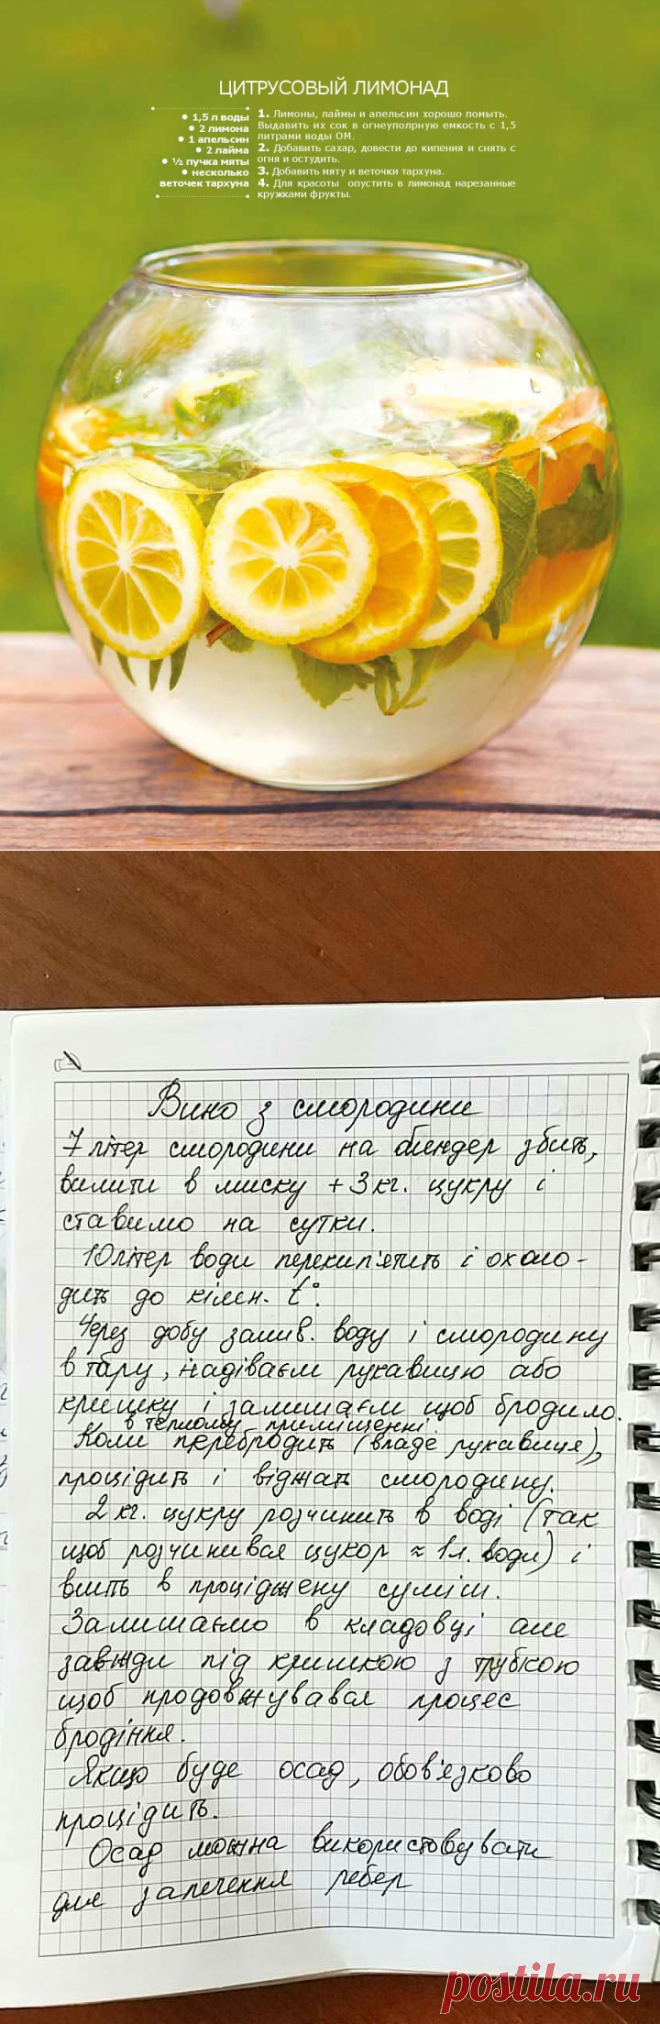 ЦИТРУСОВЫЙ ЛИМОНАД
• 1,5 л воды
• 2 лимона
• 1 апельсин
• 2 лайма
• ½ пучка мяты
• несколько
веточек тархуна
1. Лимоны, лаймы и апельсин хорошо помыть.
Выдавить их сок в огнеуполрную емкость с 1,5
литрами воды ОМ.
2. Добавить сахар, довести до кипения и снять с
огня и остудить.
3. Добавить мяту и веточки тархуна.
4. Для красоты опустить в лимонад нарезанные
кружками фрукты.
Вино з смородини
7 літер смородини на блендер збить,
вилити в миску + 3 кг. цукру і
ставимо на сутки.
10 літер води перекип'ятить і охоло-
дить до кімн. t°.
Через добу залив. воду і смородину
в тару, надіваєм рукавицю або
кришку і залишаєм щоб бродило.
в теплому приміщенні.
Коли перебродить (впаде рукавиця),
процідить і віджать смородину.
2 кг. цукру розчинить в воді (так
щоб розчинився цукор ≈ 1 л. води) і
влить в проціджену суміш.
Залишаємо в кладовці але
завжди під кришкою з трубкою
щоб продовжувався процес
бродіння.
Якщо буде осад, обов'язково
процідить.
Осад можна використовувати
для запечення ребер
postila.ru